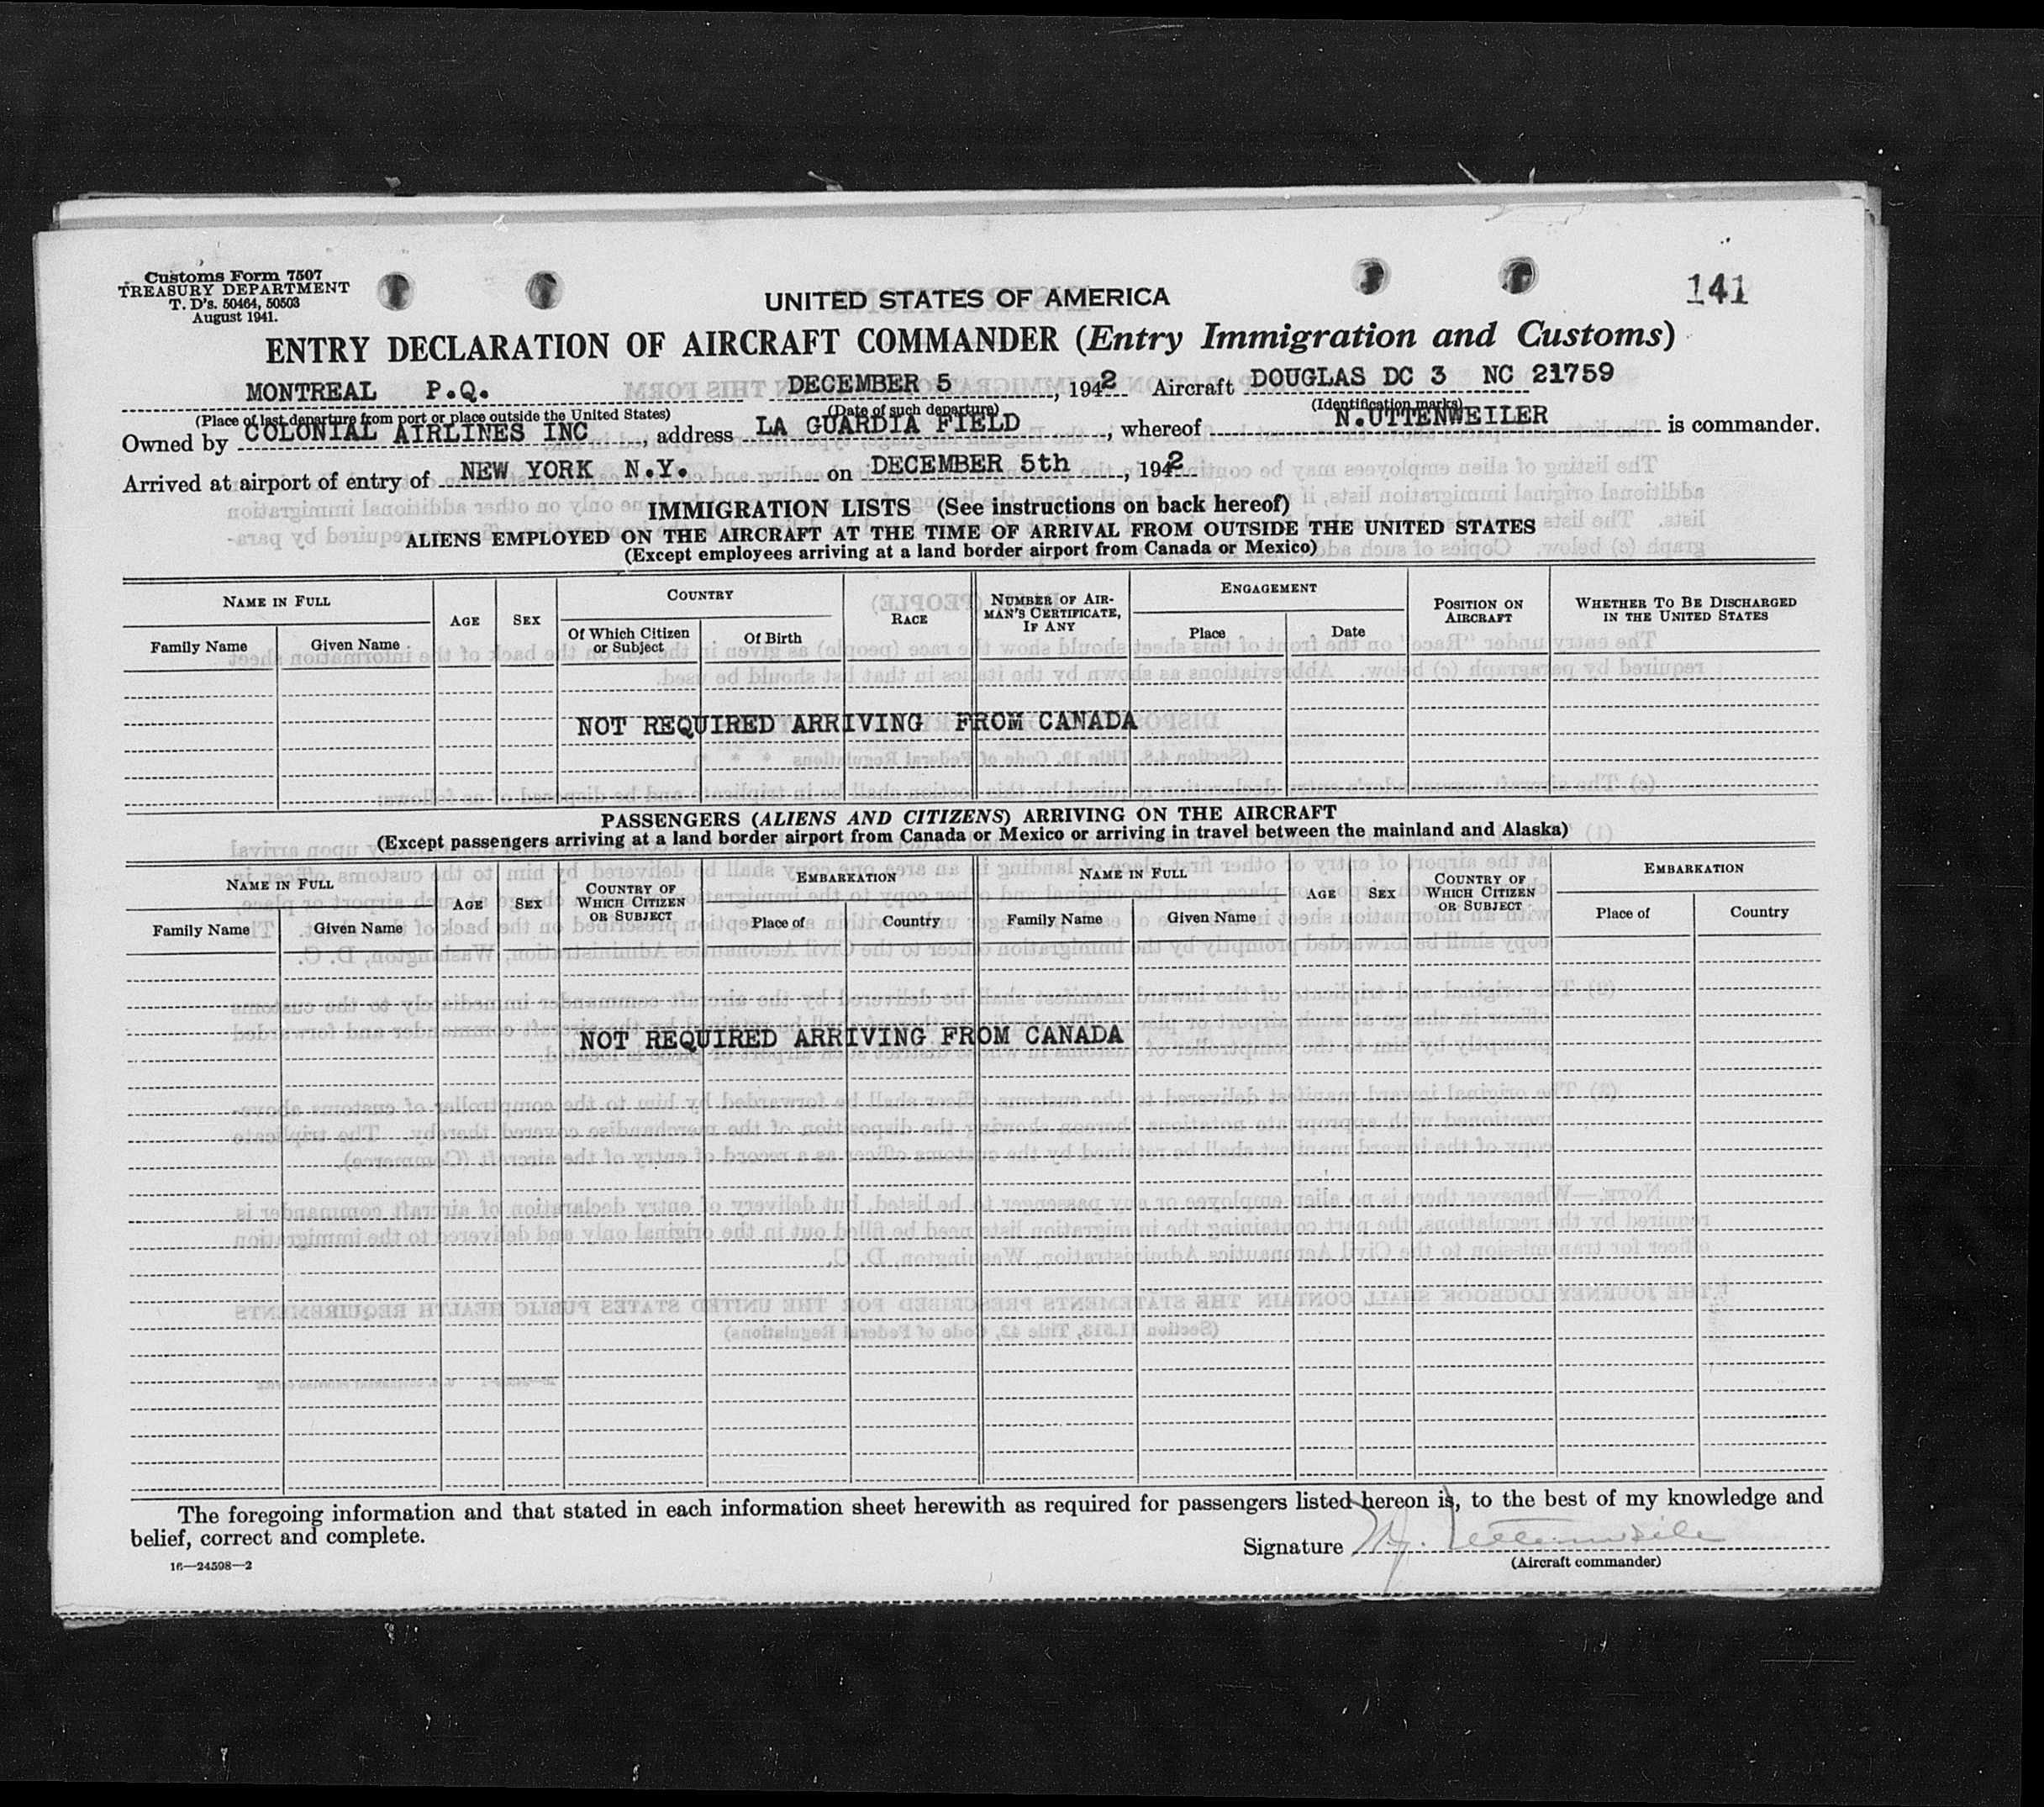 Customs Form 7507
TREASURY DEPARTMENT
T. D's. 50464, 50503
August 1941.
141
UNITED STATES OF AMERICA
ENTRY DECLARATION OF AIRCRAFT COMMANDER (Entry Immigration and Customs)
MONTREAL P.Q. DECEMBER 5, 1942 Aircraft DOUGLAS DC 3 NC 21759
(Place of last departure from port or place outside the United States) (Date of such departure) (Identification marks)
Owned by COLONIAL AIRLINES INC, address LA GUARDIA FIELD, whereof N.UTTENWEILER is commander.
Arrived at airport of entry of NEW YORK N.Y. on DECEMBER 5th, 1942
IMMIGRATION LISTS (See instructions on back hereof)
ALIENS EMPLOYED ON THE AIRCRAFT AT THE TIME OF ARRIVAL FROM OUTSIDE THE UNITED STATES
(Except employees arriving at a land border airport from Canada or Mexico)
NAME IN FULL
Family Name
Given Name
AGE
SEX
COUNTRY
Of Which Citizen or Subject
Of Birth
RACE
NUMBER OF AIRMAN'S CERTIFICATE, IF ANY
ENGAGEMENT
Place
Date
POSITION ON AIRCRAFT
WHETHER TO BE DISCHARGED IN THE UNITED STATES
NOT REQUIRED ARRIVING FROM CANADA
PASSENGERS (ALIENS AND CITIZENS) ARRIVING ON THE AIRCRAFT
(Except passengers arriving at a land border airport from Canada or Mexico or arriving in travel between the mainland and Alaska)
NAME IN FULL
Family Name
Given Name
AGE
SEX
COUNTRY OF WHICH CITIZEN OR SUBJECT
EMBARKATION
Place of
Country
NAME IN FULL
Family Name
Given Name
AGE
SEX
COUNTRY OF WHICH CITIZEN OR SUBJECT
EMBARKATION
Place of
Country
NOT REQUIRED ARRIVING FROM CANADA
The foregoing information and that stated in each information sheet herewith as required for passengers listed hereon is, to the best of my knowledge and
belief, correct and complete.
Signature N. Uttenweiler
(Aircraft commander)
16—24598—2